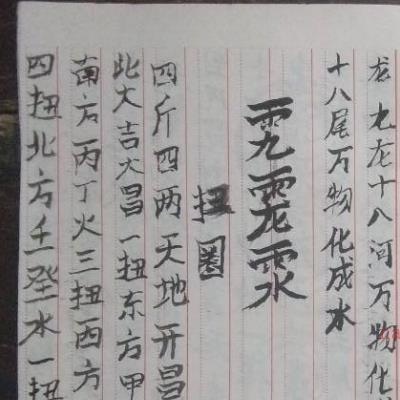 龙九龙十八河万物化
十八尾万物化成水
扭圈
四斤四两天地开昌
北大吉大昌一扭东方甲
南方丙丁火三扭西方
四扭北方壬癸水一扭